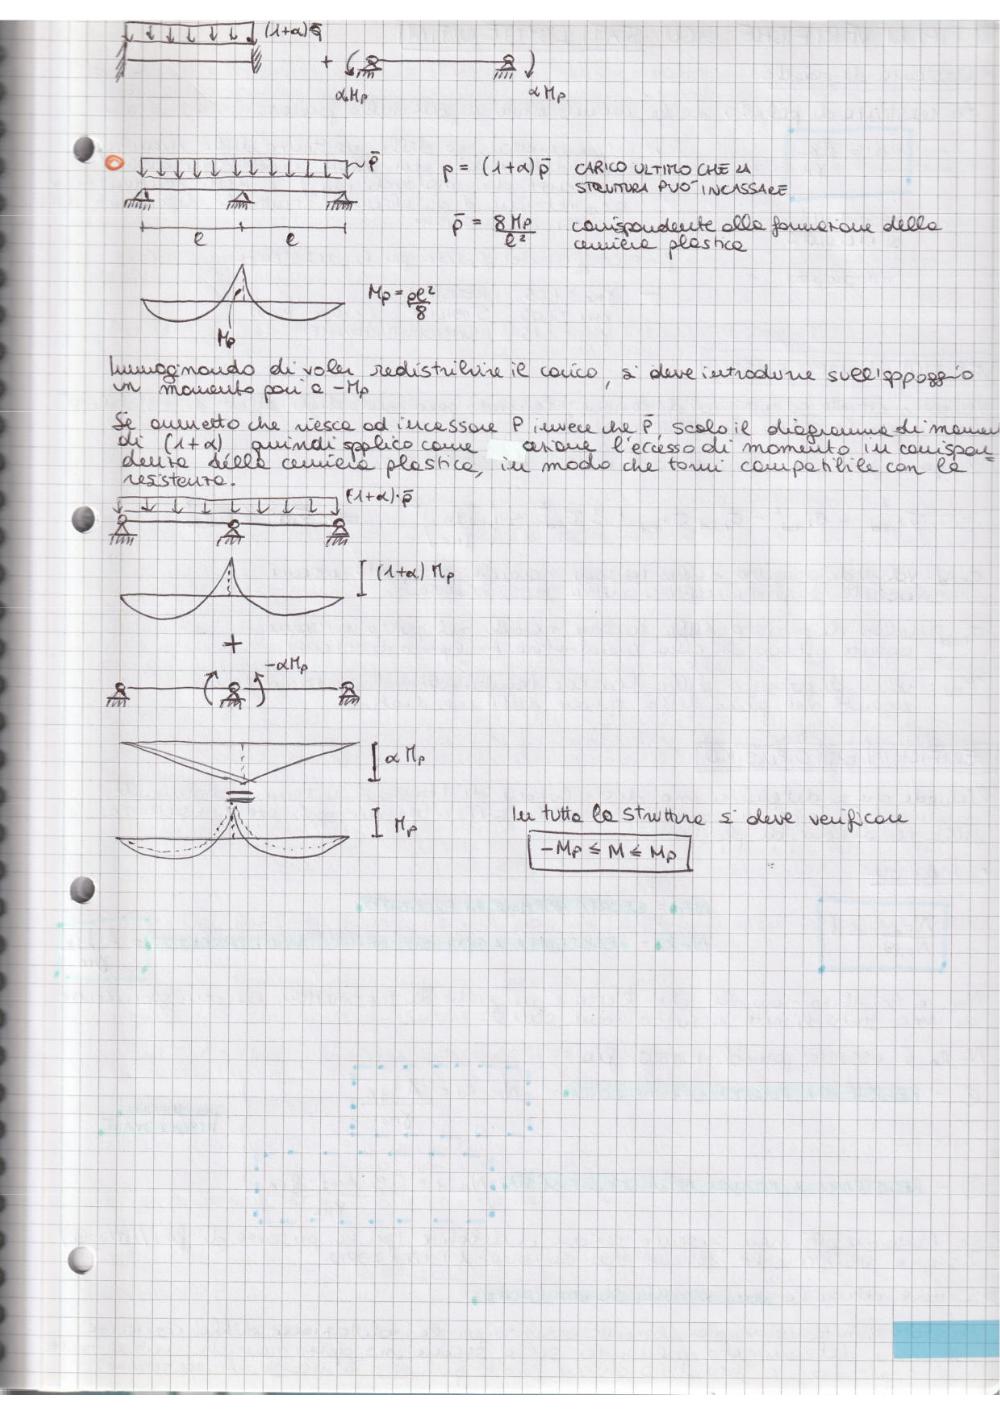 (1+α)q̄
+
αMp
αMp
p̄
p = (1+α)p̄ CARICO ULTIMO CHE LA
STRUTTURA PUO' INCASSARE
p̄ = 8Mp/l² corrispondente alla formazione della
cerniera plastica
l l
Mp = pl²/8
Mp
Immaginando di voler redistribuire il carico, si deve introdurre sull'appoggio
un momento pari a -Mp
Se ammetto che riesca ad incassare P invece che p̄, scalo il diagramma di momen
di (1+α) quindi applico come azione l'eccesso di momento in corrispon=
denza della cerniera plastica, in modo che torni compatibile con la
resistenza.
(1+α)·p̄
(1+α) Mp
+
-αMp
αMp
=
Mp
In tutta la struttura si deve verificare
-Mp ≤ M ≤ Mp